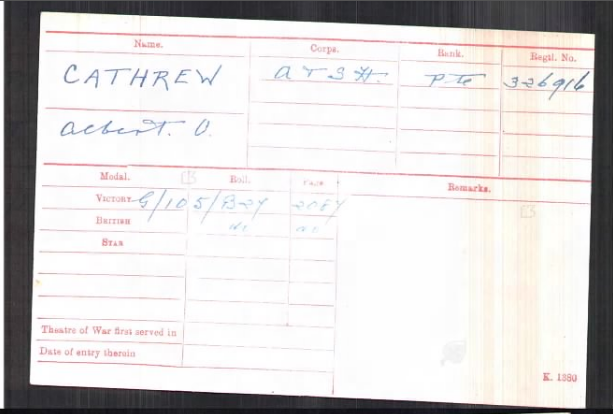 Name. Corps. Rank. Regtl. No.
CATHREW A & S H. Pte 326916
Albert. V.
Medal. Roll. Page Remarks.
VICTORY G/105/B24 2087
BRITISH do do
STAR
Theatre of War first served in
Date of entry therein
K. 1380